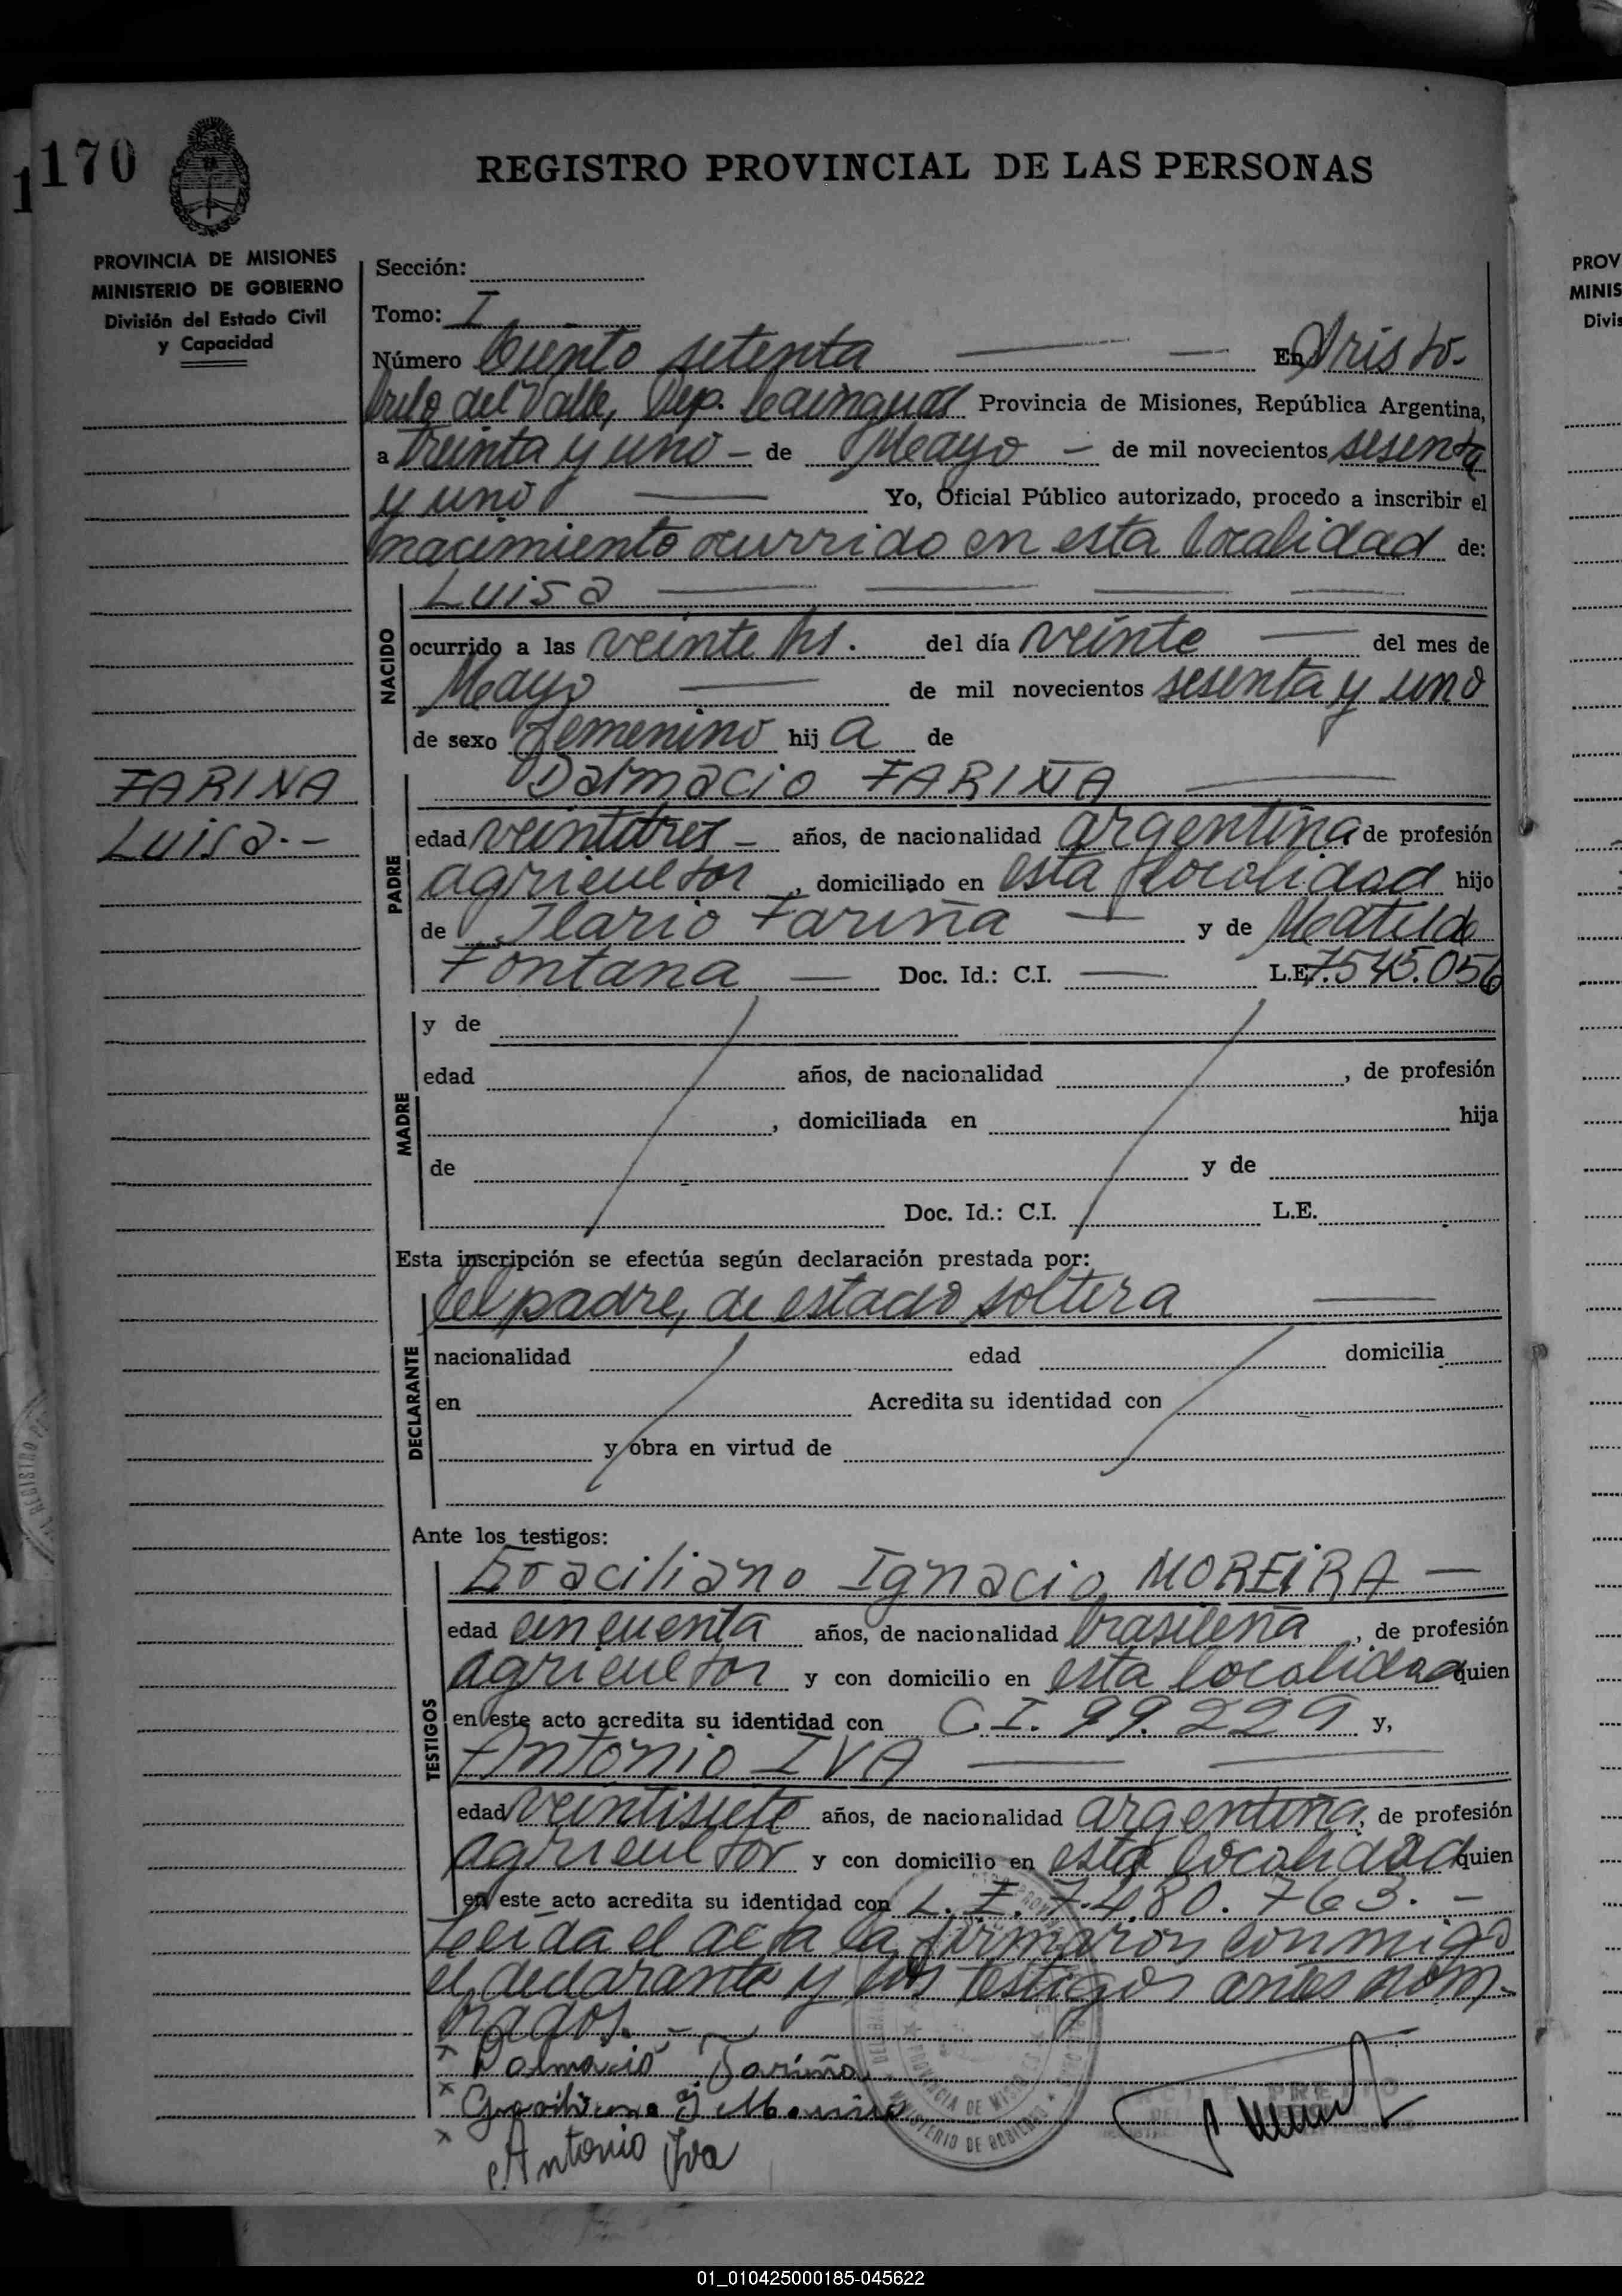 1170
REGISTRO PROVINCIAL DE LAS PERSONAS
PROVINCIA DE MISIONES
MINISTERIO DE GOBIERNO
División del Estado Civil
y Capacidad
Sección:
Tomo: I
Número Ciento setenta — — En Aristó-
bulo del Valle, Dep. Cainguas Provincia de Misiones, República Argentina,
a treinta y uno - de Mayo - de mil novecientos sesenta
y uno — Yo, Oficial Público autorizado, procedo a inscribir el
nacimiento ocurrido en esta localidad de:
NACIDO
Luisa — — — —
ocurrido a las veinte hs. del día veinte — del mes de
Mayo — de mil novecientos sesenta y uno
de sexo femenino hij a de
FARINA
Luisa.-
PADRE
Dalmacio FARIÑA —
edad veintitres - años, de nacionalidad argentina de profesión
agricultor , domiciliado en esta localidad hijo
de Ilario Fariña — y de Matilde
Fontana — Doc. Id.: C.I. — L.E. 7.545.056
MADRE
y de
edad años, de nacionalidad , de profesión
, domiciliada en hija
de y de
Doc. Id.: C.I. L.E.
Esta inscripción se efectúa según declaración prestada por:
DECLARANTE
el padre, de estado soltera —
nacionalidad edad domicilia
en Acredita su identidad con
y obra en virtud de
Ante los testigos:
TESTIGOS
Graciliano Ignacio MOREIRA —
edad cincuenta años, de nacionalidad brasileña , de profesión
agricultor y con domicilio en esta localidad quien
en este acto acredita su identidad con C.I. 99.229 y,
Antonio IVA — —
edad veintisiete años, de nacionalidad argentina, de profesión
agricultor y con domicilio en esta localidad quien
en este acto acredita su identidad con L.E. 7.480.763. -
Leída el acta la firmaron conmigo
el declarante y los testigos antes nom-
brados. -
x Dalmacio Fariña
x Graciliano I Moreira
x Antonio Iva
PROVINCIA DE MISIONES
MINISTERIO DE GOBIERNO
PROV
MINIS
Divis
01_010425000185-045622